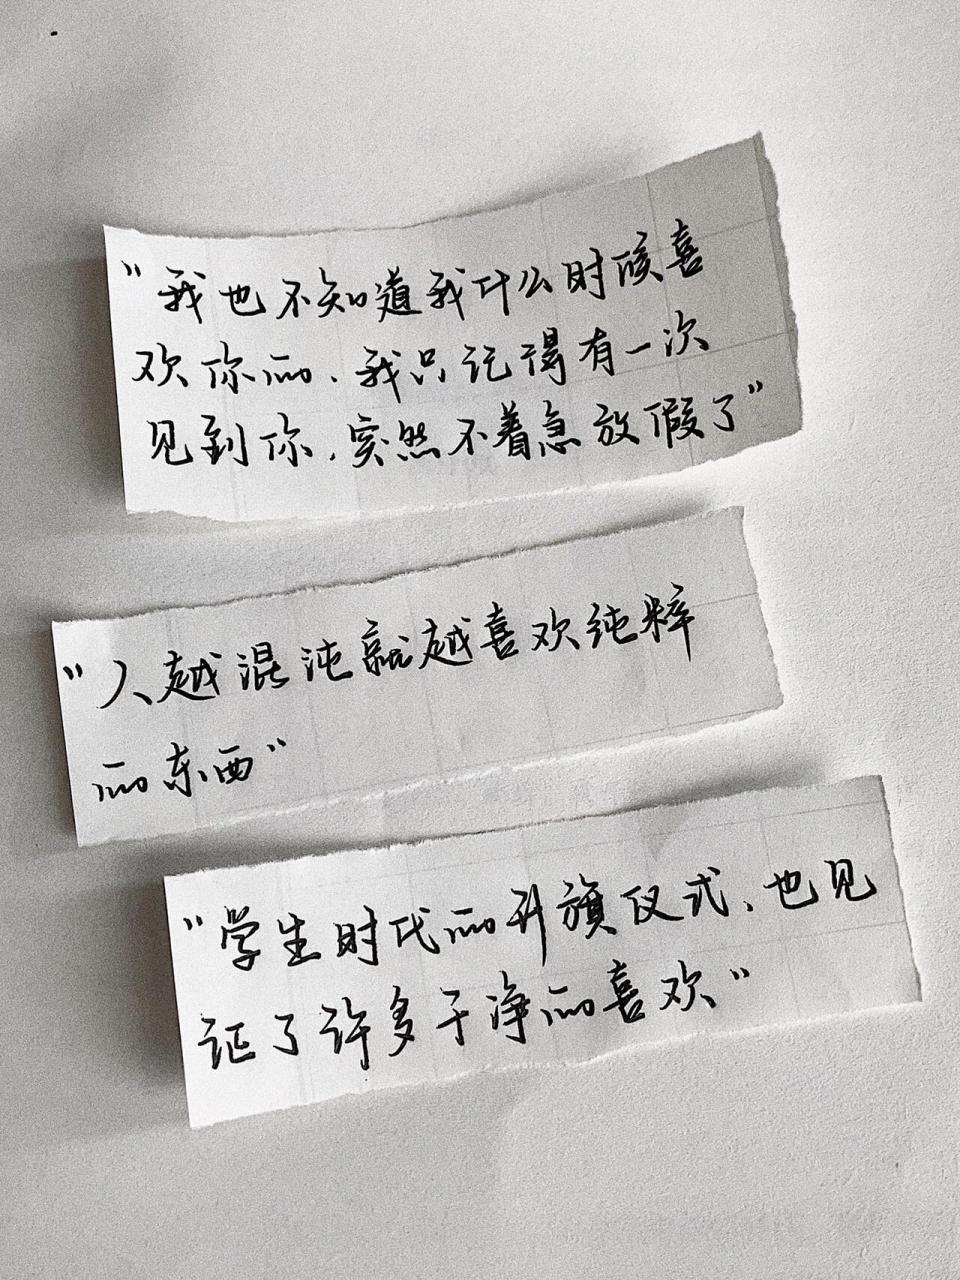 "我也不知道我什么时候喜
欢你的.我只记得有一次
见到你.突然不着急放假了"
"人越混沌就越喜欢纯粹
的东西"
"学生时代的升旗仪式、也见
证了许多干净的喜欢"